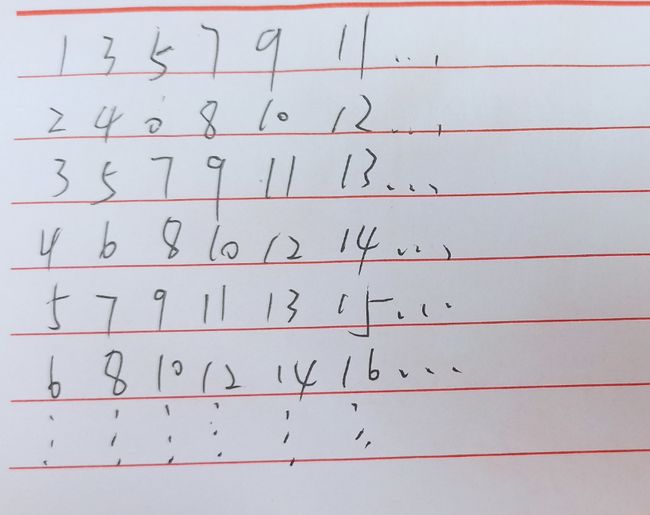 1 3 5 7 9 11 ...
2 4 6 8 10 12 ...
3 5 7 9 11 13 ...
4 6 8 10 12 14 ...
5 7 9 11 13 15 ...
6 8 10 12 14 16 ...
⋮ ⋮ ⋮ ⋮ ⋮ ⋮